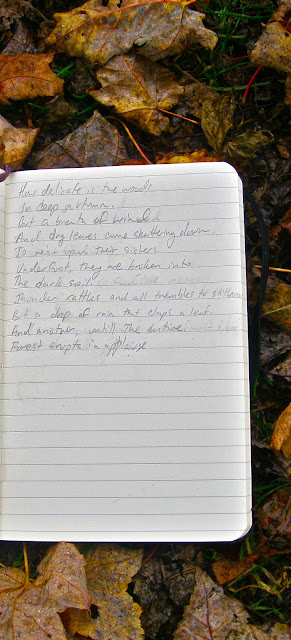 How delicate is the woods
In deep autumn.
But a breath of wind
And dry leaves come skittering down
To rest upon their sisters
Underfoot, they are broken into
The dark soil.
Thunder rattles and all trembles to stillness
But a drop of rain that claps a leaf.
And another, until the entire
Forest erupts in applause